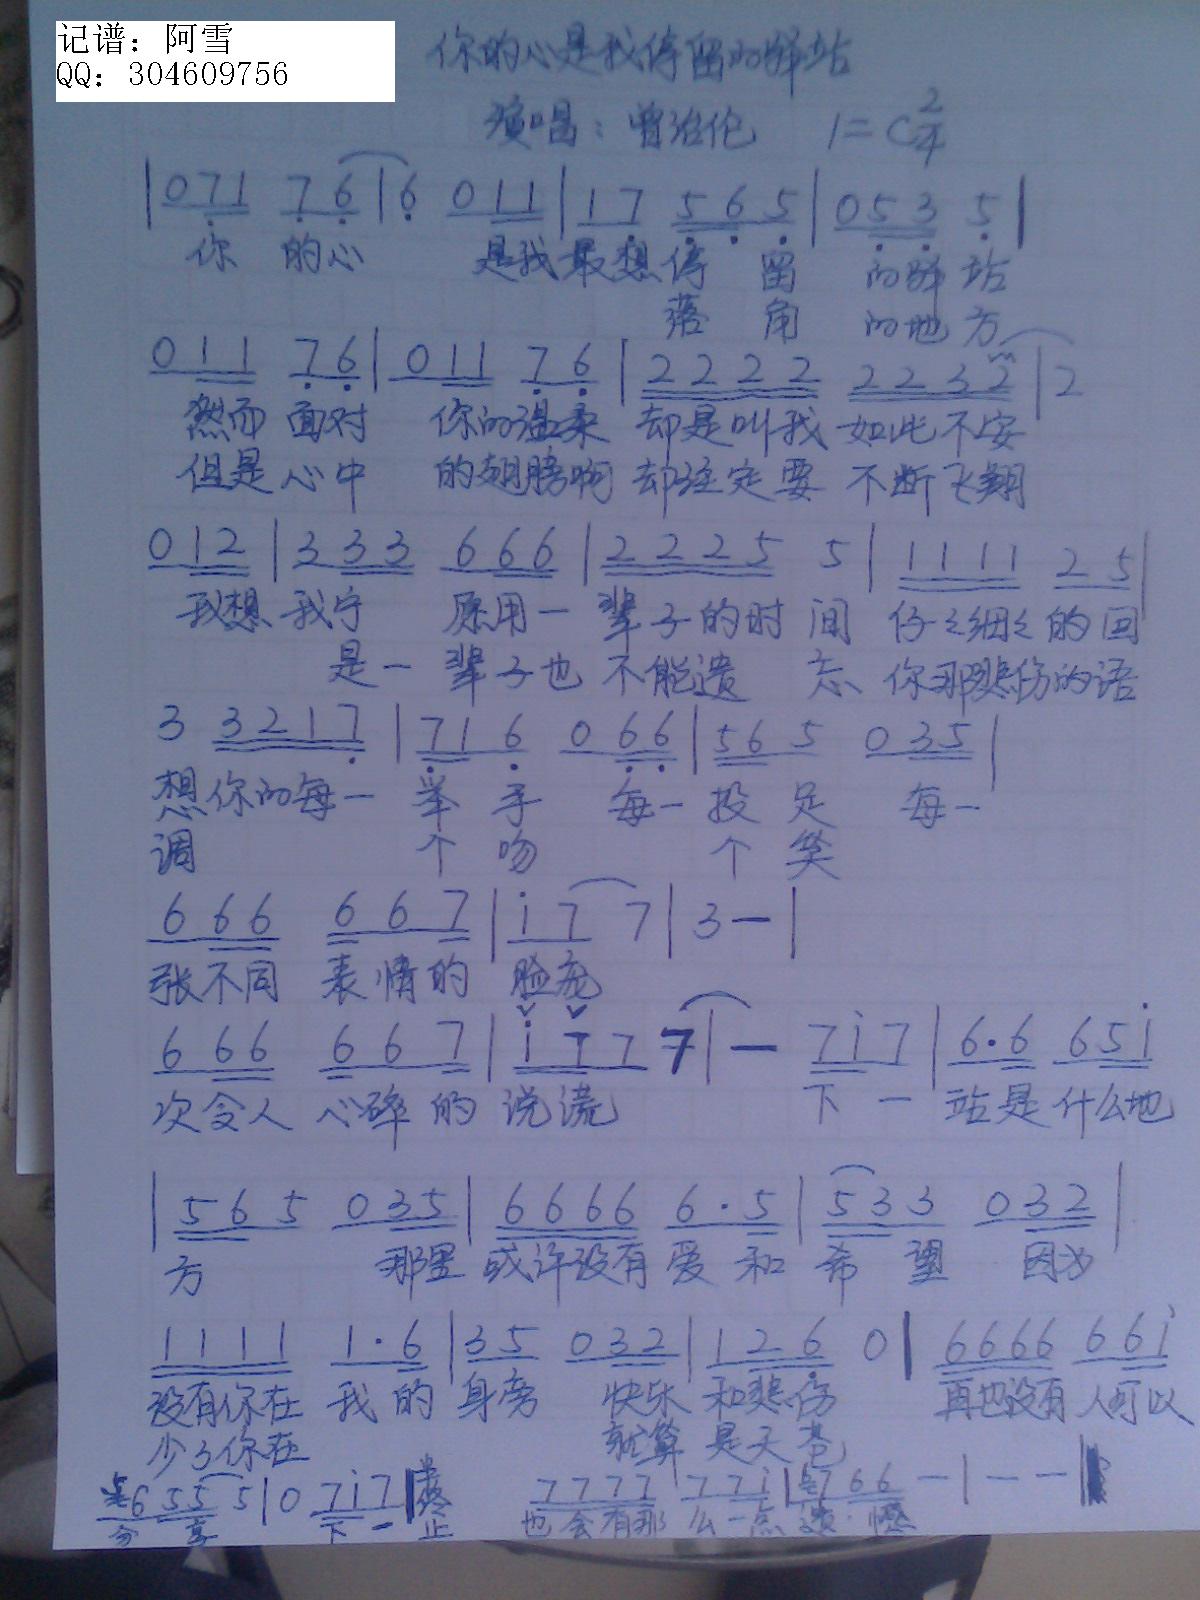 记谱：阿雪
QQ：304609756
你的心是我停留的驿站
演唱：曾治伦 1=C 2/4
|071 76|6 011|17 565|053 5|
你 的心 是我最想停 留 的驿站
落角 的地方
011 76|011 76|2222 2232|2
然而面对 你的温柔 却是叫我 如此不安
但是心中 的翅膀啊 却注定要 不断飞翔
012|333 666|2225 5|1111 25|
我想我宁 愿用一 辈子的时 间 仔々细々的回
是一 辈子也 不能遗 忘 你那悲伤的语
3 3217|71 6 0 66|56 5 0 35|
想你的每一 举 手 每一 投 足 每一
调 个 吻 个 笑
666 667|i7 7|3－|
张不同 表情的 脸庞
666 667|i777|— 7i7|6·6 65i
次令人 心碎的 说谎 下一 站是什么地
|565 035|6666 6·5|533 032|
方 那里 或许没有 爱 和 希 望 因为
1111 1·6|35 032|126 0|6666 66i
没有你在 我的 身旁 快乐 和悲伤 再也没有 人可以
少了你在 就算 是天苍
655 5|0 7i7| 终止 7777 77i|766 —|——|
分 享 下一 也会有那 么一点 遗·憾